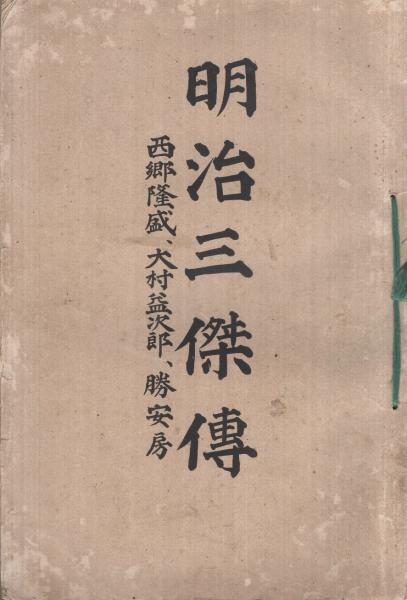 明治三傑傳
西郷隆盛、大村益次郎、勝安房